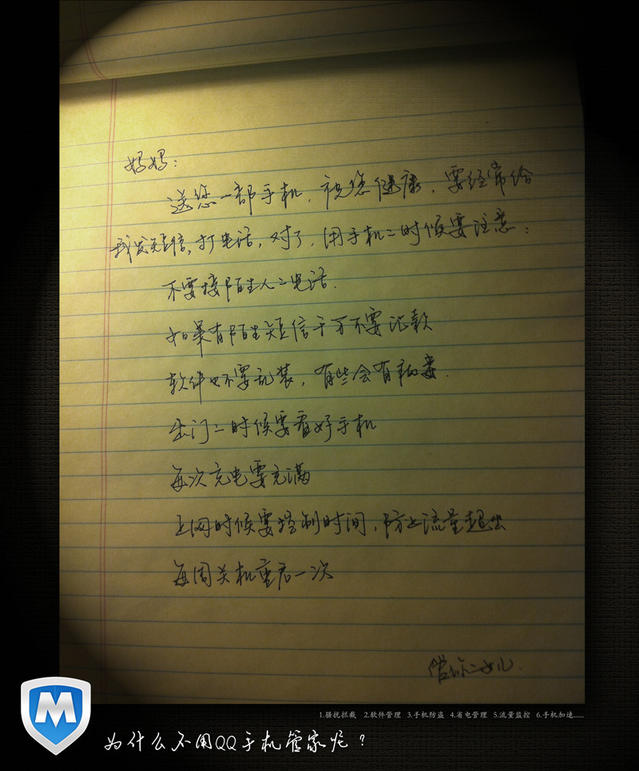 妈妈:
送您一部手机，祝您健康，要经常给
我发短信，打电话，对了，用手机的时候要注意：
不要接陌生人的电话.
如果有陌生短信千万不要汇款
软件也不要乱装，有些会有病毒.
出门的时候要看好手机
每次充电要充满
上网时候要控制时间，防止流量超出
每周关机重启一次
女儿
1.骚扰拦截 2.软件管理 3.手机防盗 4.省电管理 5.流量监控 6.手机加速......
M
为什么不用QQ手机管家呢？